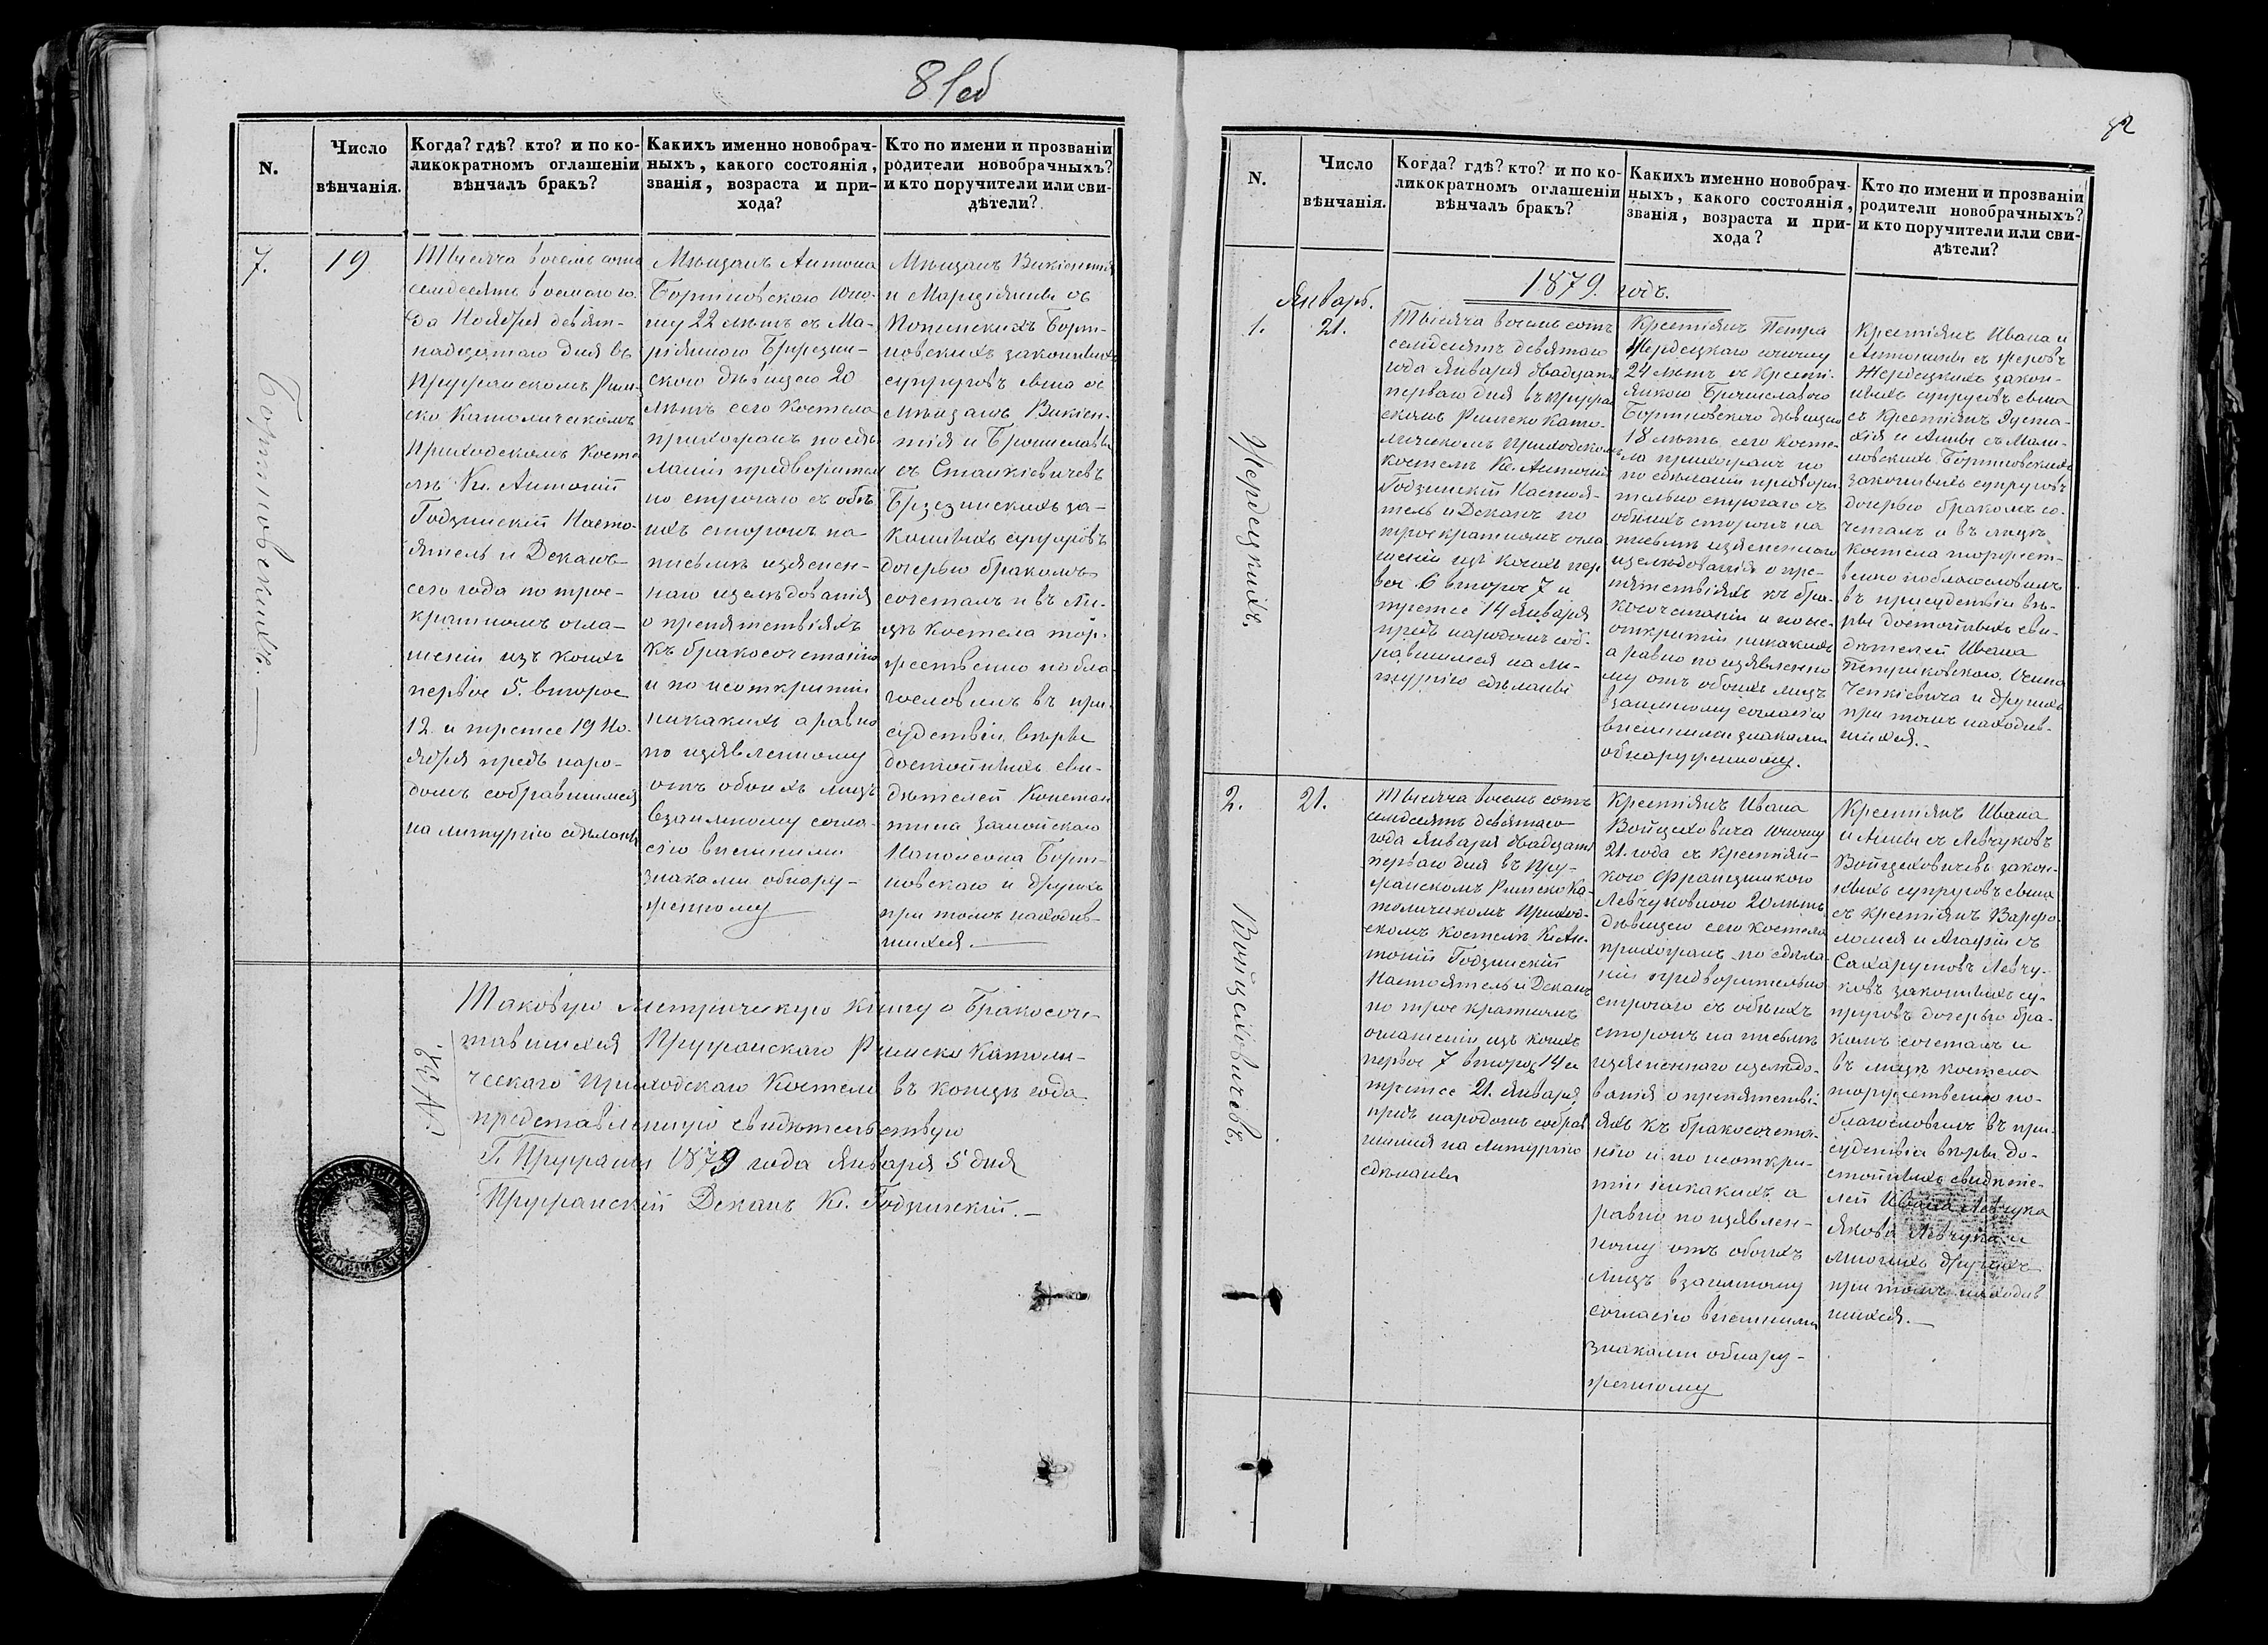 81об
N.
Число
вѣнчанія.
Когда? гдѣ? кто? и по ко-
ликократномъ оглашеніи
вѣнчалъ бракъ?
Какихъ именно новобрач-
ныхъ, какого состоянія,
званія, возраста и при-
хода?
Кто по имени и прозванію
родители новобрачныхъ?
и кто поручители или сви-
дѣтели?
7.
Бортновскихъ.
19
Тысяча восемь сотъ
семдесятъ восмого го-
да Ноября девят-
надцатого дня въ
Пружанскомъ Рим-
ско Католическомъ
Приходскомъ Косте
лѣ Кс. Антоній
Годзинскій Насто-
ятель и Деканъ
сего года по трое-
кратномъ огла-
шеніи изъ коихъ
первое 5. второе
12. и третее 19 Но-
ября предъ наро-
домъ собравшимся
на литургію сдѣланы
Мѣщанъ Антона
Бортновскаго юно-
шу 22 лѣтъ съ Ма-
ріянною Брzезин-
ского дѣвицею 20
лѣтъ сего Костела
прихожанъ по сдѣ
ланіи предворител
но строгаго съ обѣ
ихъ сторонъ на
письмѣ изяснен-
наго изслѣдованія
о препятствіяхъ
къ бракосочетанію
и по неоткритіи
никакихъ а равно
по изявленному
отъ обоихъ лицъ
взаимному согла-
сію внешними
знаками обнару-
женному
Мѣщанъ Викіентія
и Марціянны съ
Попинскихъ Борт-
новскихъ законныхъ
супруговъ сына съ
мѣщанъ Викіен-
тія и Брониславы
съ Станкіевичевъ
Брзезинскихъ за-
конныхъ супруговъ
дочерью бракомъ
сочеталъ и въ ли-
цѣ Костела тор-
жественно побла-
гословилъ въ при-
судствіи вѣры
достойныхъ сви-
дѣтелей Констан
тина Замойскаго
Наполеона Борт-
новскаго и другихъ
при томъ находив-
шихся.
Таковую метрическую книгу о Бракосоче-
тавшихся Пружанскаго Римско Католи-
ческаго Приходскаго Костела въ конце года
представленную свидѣтельствую
Г. Пружаны 1879 года Января 5 дня
Пружанскій Деканъ Кс. Годзинскій.
82
N.
Число
вѣнчанія.
Когда? гдѣ? кто? и по ко-
ликократномъ оглашеніи
вѣнчалъ бракъ?
Какихъ именно новобрач-
ныхъ, какого состоянія,
званія, возраста и при-
хода?
Кто по имени и прозваніи
родители новобрачныхъ?
и кто поручители или сви-
дѣтели?
1879. годъ.
Январь.
1.
Жердецкихъ.
21.
Тысяча восемь сотъ
семдесятъ девятаго
года Января двадцать
перваго дня въ Пружа
скомъ Римско Като-
лическомъ Приходском
костелѣ Кс. Антоній
Годзинскій Настоя-
тель и Деканъ по
троекратномъ огла
шеніи изъ коихъ пер
вое 6 второе 7 и
третее 14 Января
предъ народомъ соб-
равшимся на ли-
тургію сдѣланы
Крестіянъ Петра
Жердецкаго юношу
24 лѣтъ съ Кресті-
янкою Брониславого
Бортновского дѣвицею
18 лѣтъ сего косте-
ла прихожанъ по
по сдѣланіи предвори
тельно строгаго съ
обѣихъ сторонъ на
письмѣ изясненного
изслѣдованія о пре-
пятствіяхъ къ бра-
косочетанію и по не-
открытіи никакихъ
а равно по изявленно
му отъ обоихъ лицъ
взаимному согласію
внешними знаками
обнаруженному.
Крестіянъ Ивана и
Антонины съ
Жердецкихъ закон-
ныхъ супруговъ сына
съ Крестіянъ Евста-
хія и Анны съ Мали-
новскихъ Бортновскихъ
законныхъ супруговъ
дочерью бракомъ со-
четалъ и въ лицѣ
Костела торжест-
венно поблагословилъ
въ присудствіи вѣ-
ры достойныхъ сви-
дѣтелей Ивана
Петриковского, Осипа
Ченкіевича и другихъ
при томъ находив-
шихся.
2.
Войцеховичевъ.
21.
Тысяча восемь сотъ
семдесятъ девятаго
года Января двадцать
перваго дня въ Пру-
жанскомъ Римско Ка-
толическомъ Приход-
скомъ костелѣ Кс. Ан-
тоній Годзинскій
Настоятель и Деканъ
по трое кратномъ
оглашеніи изъ коихъ
первое 7 второе 14 и
третее 21. Января
предъ народомъ собрав
шимся на Литургію
сдѣланы
Крестіянъ Ивана
Войцеховича юношу
21. года съ Крестіян-
кого Францишкого
Левчуковного 20 лѣтъ
дѣвицею сего костела
прихожанъ по сдѣла-
ніи предворительно
строгаго съ обѣихъ
сторонъ на письмѣ
изясненнаго изслѣдо-
ванія о препятстві-
яхъ къ бракосочета-
нію и по неоткри-
тіи никакихъ а
равно по изявлен-
ному отъ обоихъ
лицъ взаимному
согласію внешними
знаками обнару-
женному
Крестіянъ Ивана
и Анны съ Левчуковъ
Войцеховичевъ закон-
ныхъ супруговъ сына
съ Крестіянъ Варфо-
ломея и Агафіи съ
Сахарутовъ Левчу-
ковъ законныхъ су-
пруговъ дочерью бра-
комъ сочеталъ и
въ лицѣ костела
торжественно по-
благословилъ въ при-
судствіи вѣры до-
стойныхъ свидѣте-
лей Ивана Левчука
Якова Левчука и
многихъ другихъ
при томъ находив
шихся.